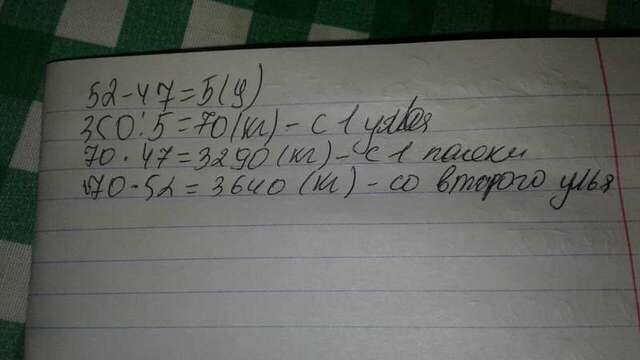 52-47=5(у)
350:5=70(кг)-с 1 улья
70·47=3290(кг)-с 1 пасеки
70·52=3640(кг)-со второго улья